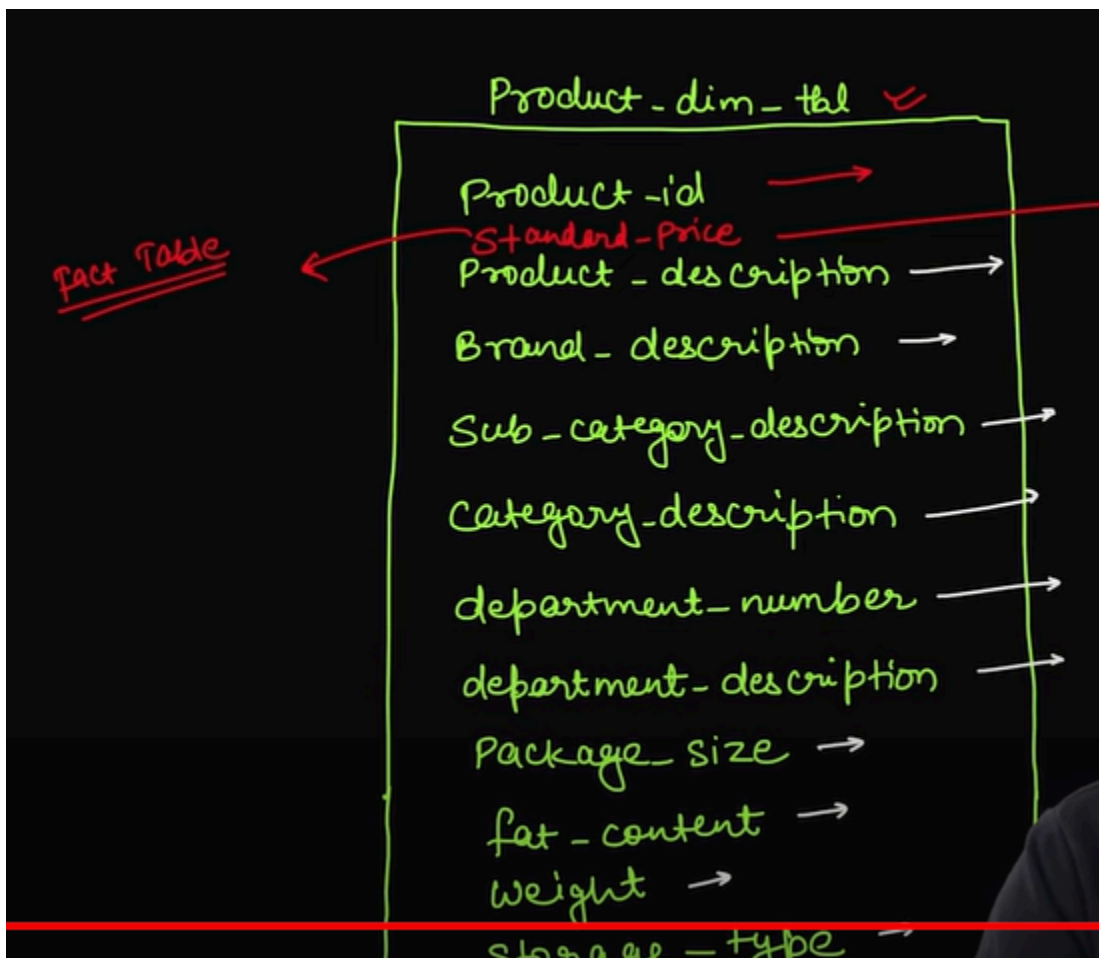 Product_dim_tbl
Product_id
Standard_Price
Fact Table
Product_description
Brand_description
Sub_category_description
Category_description
department_number
department_description
Package_size
fat_content
weight
storage_type